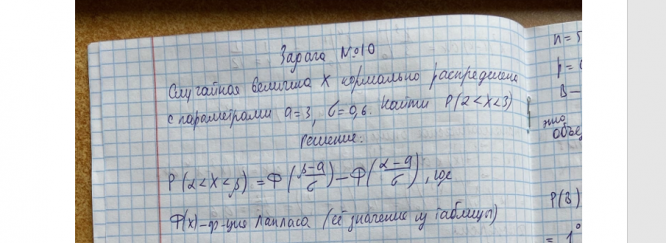 Задача №10
Случайная величина X нормально распределена
с параметрами a=3, σ=0,6. Найти P(2<X<3)
Решение:
P(α<X<β) = Φ((β-a)/σ) - Φ((α-a)/σ), где
Φ(x) - ф-ция Лапласа (её значение из таблицы)
n=5
P(B)